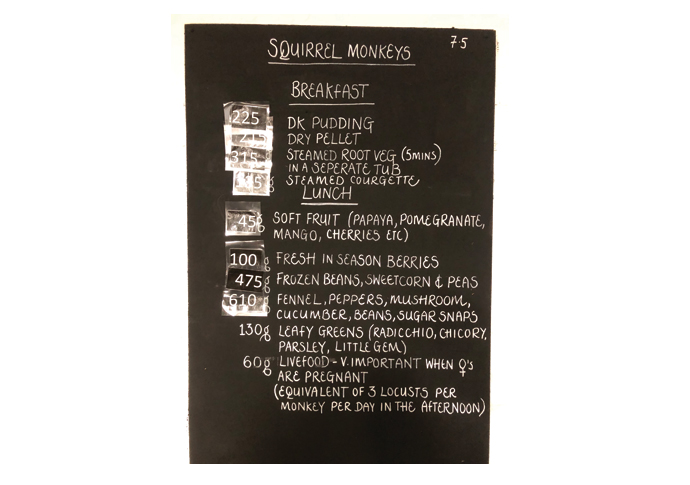 7.5
SQUIRREL MONKEYS
BREAKFAST
225 DK PUDDING
215 DRY PELLET
315 STEAMED ROOT VEG (5MINS)
IN A SEPERATE TUB
g STEAMED COURGETTE
LUNCH
45g SOFT FRUIT (PAPAYA, POMEGRANATE,
MANGO, CHERRIES ETC)
100g FRESH IN SEASON BERRIES
475g FROZEN BEANS, SWEETCORN & PEAS
610g FENNEL, PEPPERS, MUSHROOM,
CUCUMBER, BEANS, SUGAR SNAPS
130g LEAFY GREENS (RADICCHIO, CHICORY,
PARSLEY, LITTLE GEM)
60g LIVEFOOD - V.IMPORTANT WHEN ♀'s
ARE PREGNANT
(EQUIVALENT OF 3 LOCUSTS PER
MONKEY PER DAY IN THE AFTERNOON)